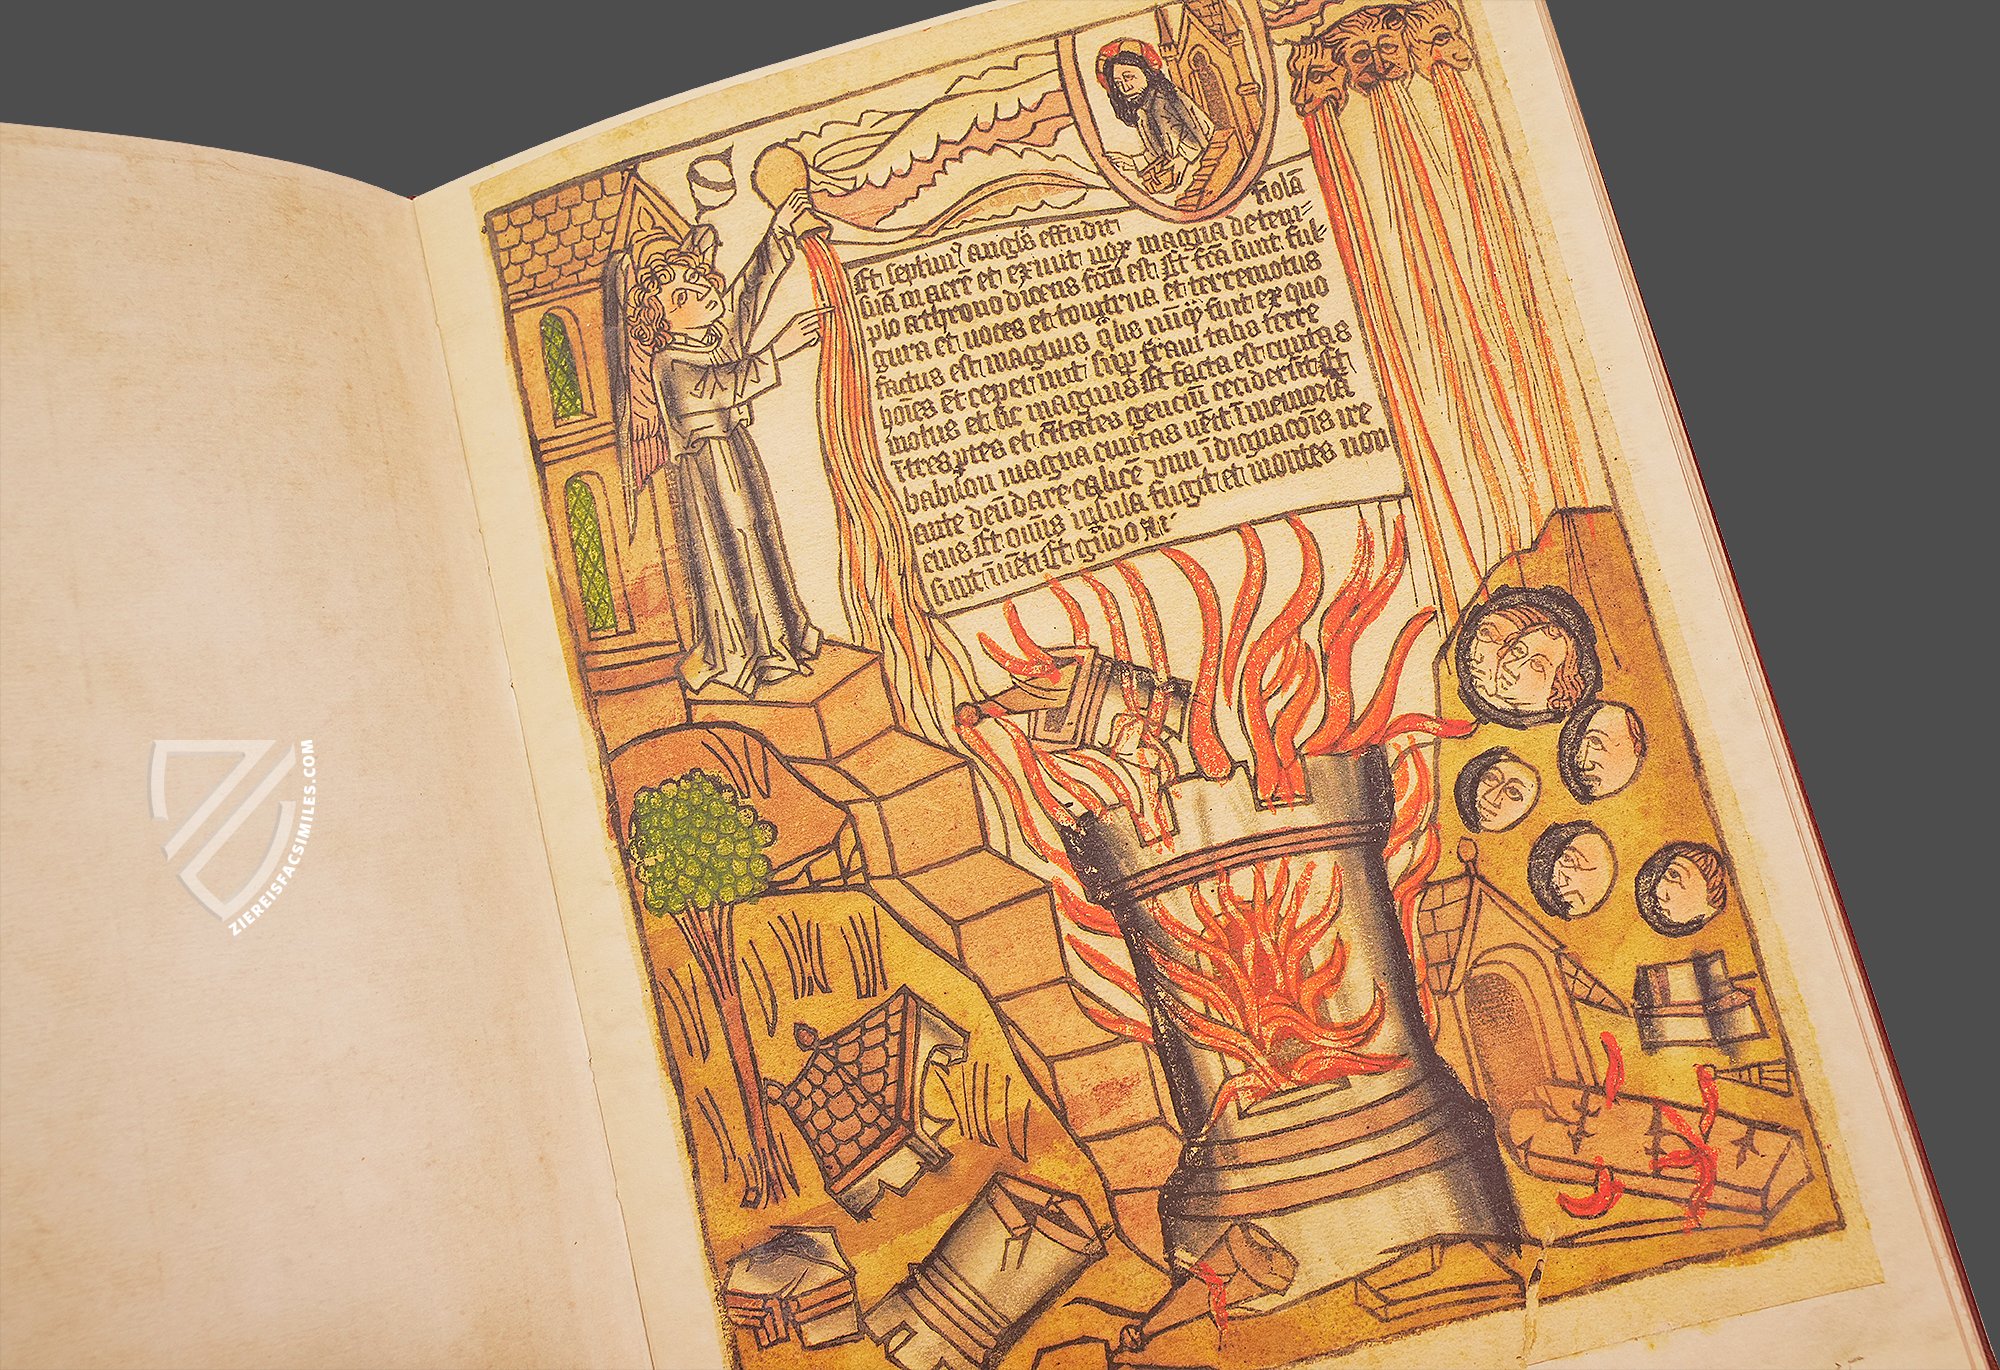 S
Et septim⁹ angl̄s effudit fiolā
suā in aerē et exiuit vox magna de tem=
plo a throno dicens fc̄m est Et fc̄a sunt ful-
gura et voces et tonitrua et terremotus
factus est magnus q̄lis nūq̄ fuit ex quo
hoīes ceperunt sup terrā talis terre
motus et sic magnus Et facta est ciuitas
ī tres ptes et ciūtates genciū ceciderūt Et
babilon magna ciuitas venit ī memoriā
ante deū dare calicē vini īdignacōis ire
eius Et om̄is insula fugit et montes non
sunt īuēti Et grādo
ZIEREISFACSIMILES.COM